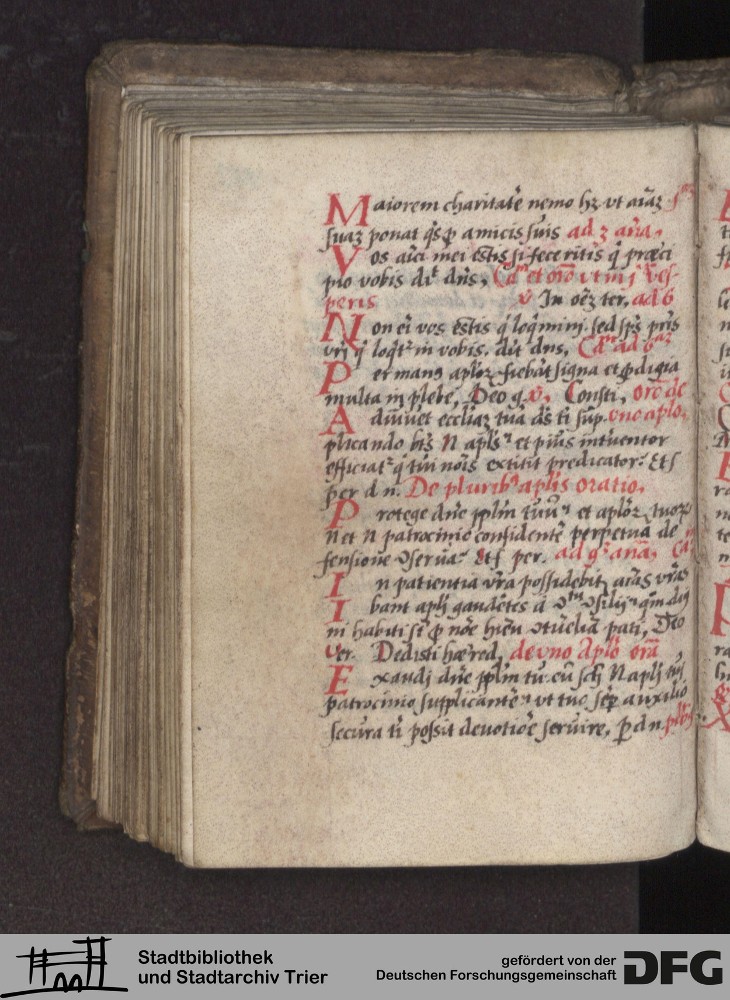 Maiorem charitatē nemo hꝫ vt aīaꝫ
suaꝫ ponat q̄s ꝓ amicis suis ad 3 aña.
Vos aīci mei estis si feceritis q̄ præci
pio vobis dīt dn̄s,
peris ℣ In oēꝫ ter, ad 6
Non eī vos estis q̄ loq̄minj. sed sp̄s pr̄is
vrj q̄ loq̄t² in vobis. dīt dn̄s,
Per manꝯ apl̄oꝝ fiebāt signa et ꝓdigia
multa in plebe, Deo g. ℣. Consti, oro de
Adiuuet eccliaꝫ tuā ds̄ ti sup. vno aplo,
plicando bt̄s N apl̄s et piꝰ interuentor
efficiat² q̄ tui nois̄ extitit predicator: Et s
per d n. De pluribꝰ apl̄is oratio,
Protege dn̄e ppl̄m tuū et apl̄oꝝ tuoꝝ
N et N patrocinio confidentē perpetua de
fensione ꝯserua: Et s per.
In patientia vr̄a possidebitꝭ aīas vr̄as
Ibant apl̄j gaudētes a
ni habiti st̄ ꝓ noīe hiēu ꝯtumeliā pati, Deo
Ver. Dedisti hæred, de vno Aplo ora
Exaudj dn̄e ppl̄m tuū cū sc̄j N apl̄j tuj
patrocinio supplicantē, vt tuo semꝑ auxilio
secura ti possit deuotiōe seruire, ꝑ d n.
Stadtbibliothek
und Stadtarchiv Trier
gefördert von der
Deutschen Forschungsgemeinschaft
DFG